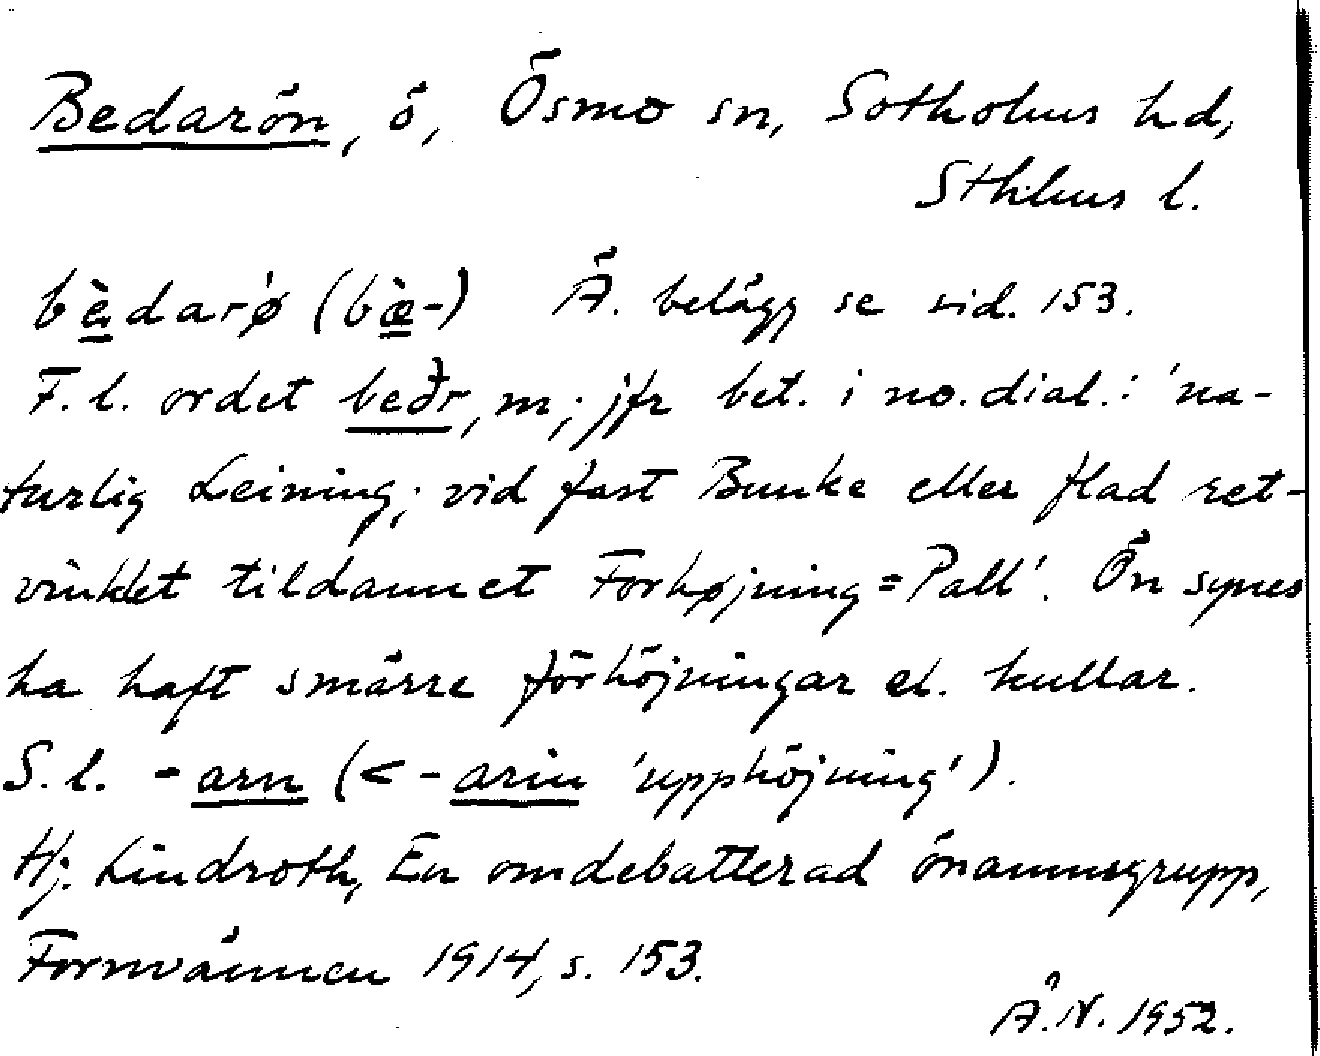 Bedarön, ö, Ösmo sn, Sotholms hd,
Sthlms l.
bèdarø̍ (bæ̀-) Ä. belägg se sid. 153.
F.l. ordet beðr, m; jfr bet. i no. dial.: 'na-
turlig Leining; vid fast Bunke eller flad ret-
vinklet tildannet Forhøjning = Pall'. Ön synes
ha haft smärre förhöjningar el. kullar.
S.l. -arn (<-arin 'upphöjning').
Hj. Lindroth, En omdebatterad önamnsgrupp,
Fornvännen 1914, s. 153.
Å.N. 1952.